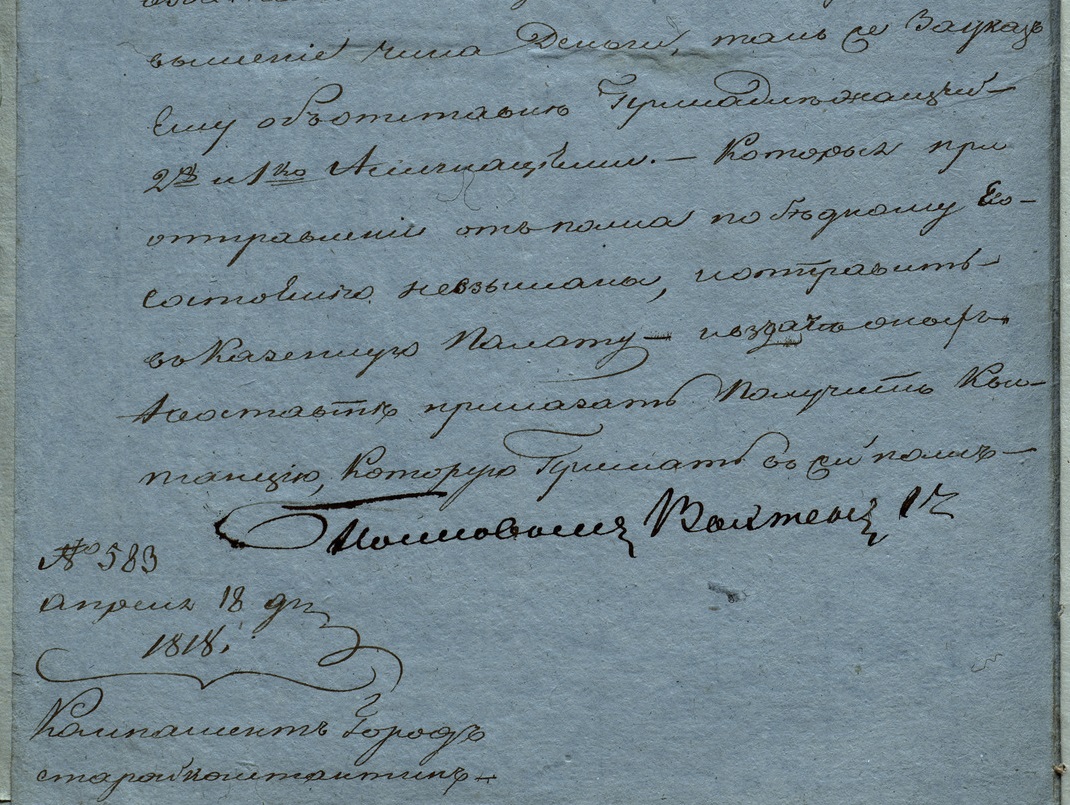 вышеніе чина Деньги, такъ же За указъ
Ему объ отставке Принадлежащій
2 р и 1 ко Ассигнацыями. — Которыя при
отправленіи отъ полка по бѣдному Его
состоянию невзыманы, и отправить
въ Казенную Палату — и въ здаче оныхъ
доставить приказать Получить Кви-
танцію, Которую Прислать въ сей полкъ —
Полковникъ
№ 583
апреля 18 дня
1818.
Компаментъ Городъ
старойконстантинъ —